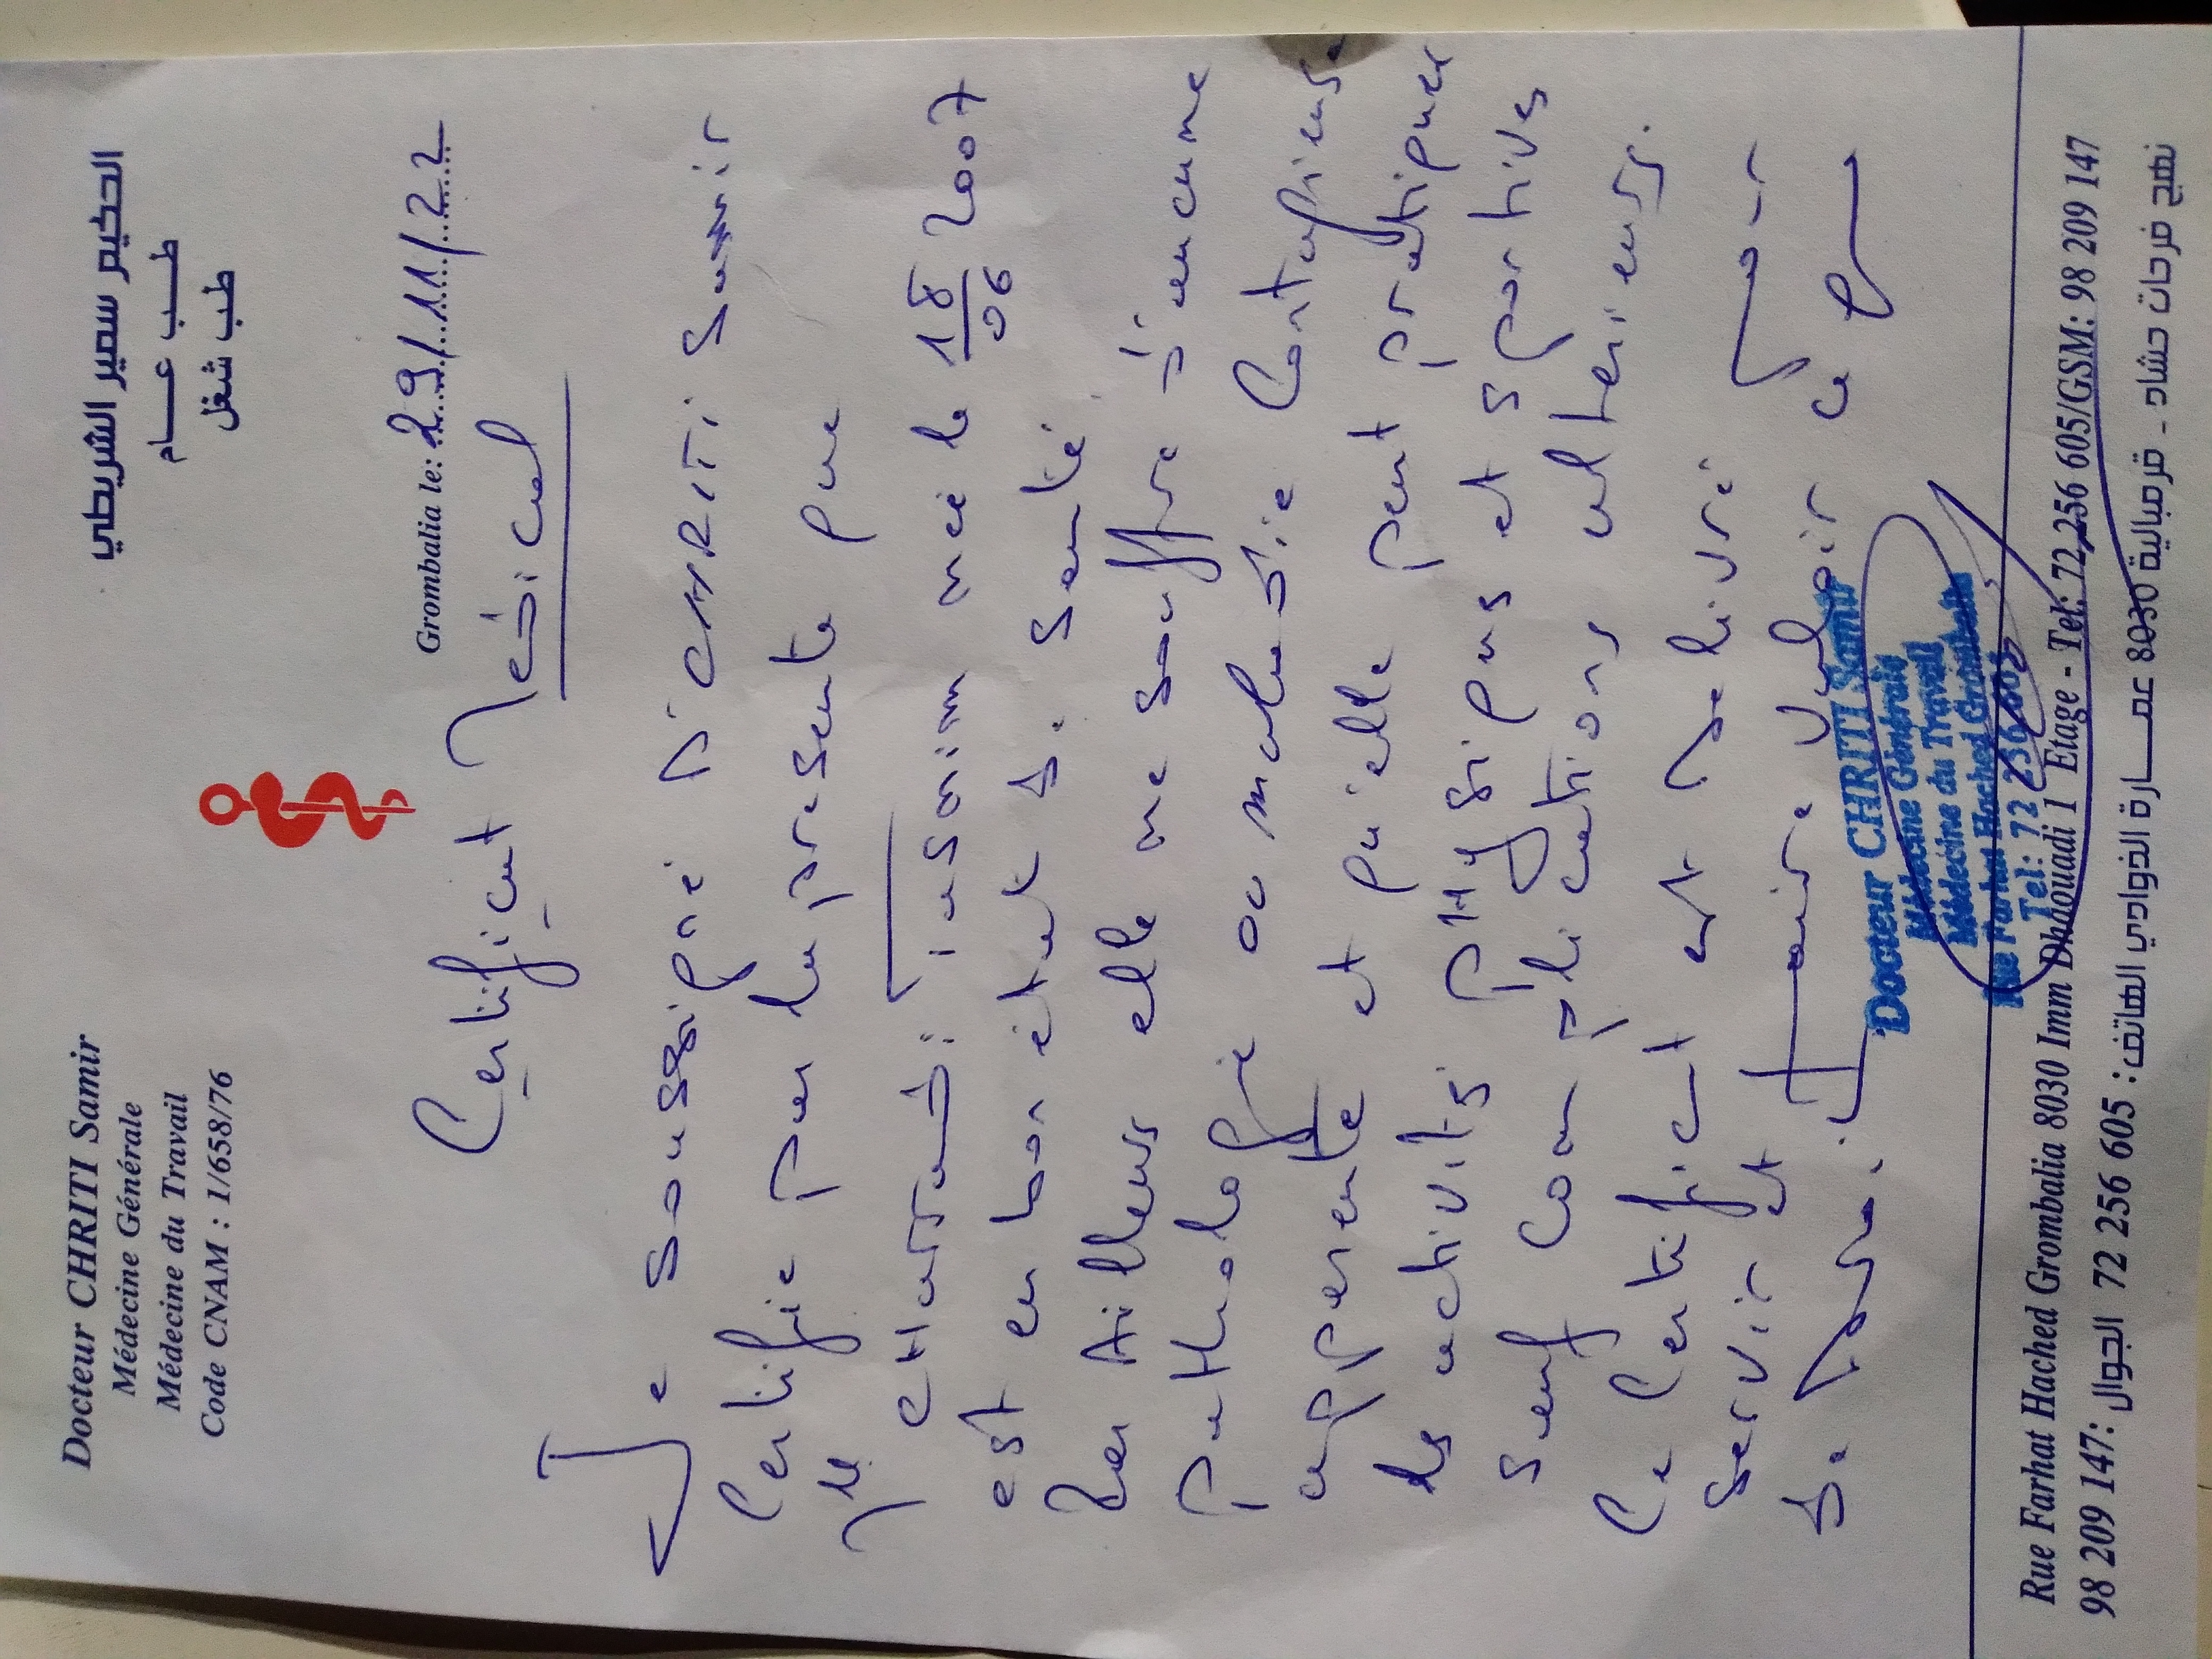 Docteur CHRITI Samir
Médecine Générale
Médecine du Travail
Code CNAM : 1/658/76
الحكيم سمير الشريطي
طب عام
طب شغل
Grombalia le: 29/11/22
Certificat Medical
Je soussigné Dr CHRITI Samir
Certifie par la presente que
est en bon état de Santé
Par Ailleurs elle ne souffre d'aucune
Pathologie ou maladie Contagieuse
apparente et qu'elle peut pratiquer
les activités physiques et sportives
sauf complications ulterieurs.
Ce Certificat est delivré pour
servir et faire valoir ce
de droit.
Docteur CHRITI Samir
Médecine Générale
Médecine du Travail
Rue Farhat Hached Grombalia
Tel: 72 256 605
Rue Farhat Hached Grombalia 8030 Imm Dhaouadi 1 Etage - Tel: 72 256 605/GSM: 98 209 147
نهج فرحات حشاد - قرمبالية 8030 عمارة الذوادي الهاتف: 605 256 72 الجوال: 147 209 98